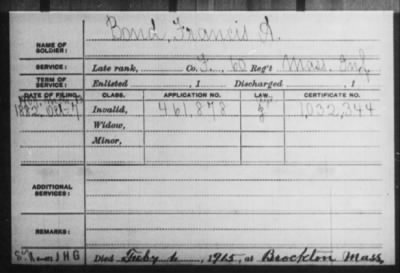 Bond, Francis A.
NAME OF SOLDIER:
SERVICE: Late rank, Co. F, 60 Reg't Mass. Inf
TERM OF SERVICE: Enlisted , 1 Discharged , 1
DATE OF FILING. CLASS. APPLICATION NO. LAW. CERTIFICATE NO.
1882, Oct. Invalid, 461,878 1,032,344
Widow,
Minor,
ADDITIONAL SERVICES:
REMARKS:
Died July 6, 1915, at Brockton Mass